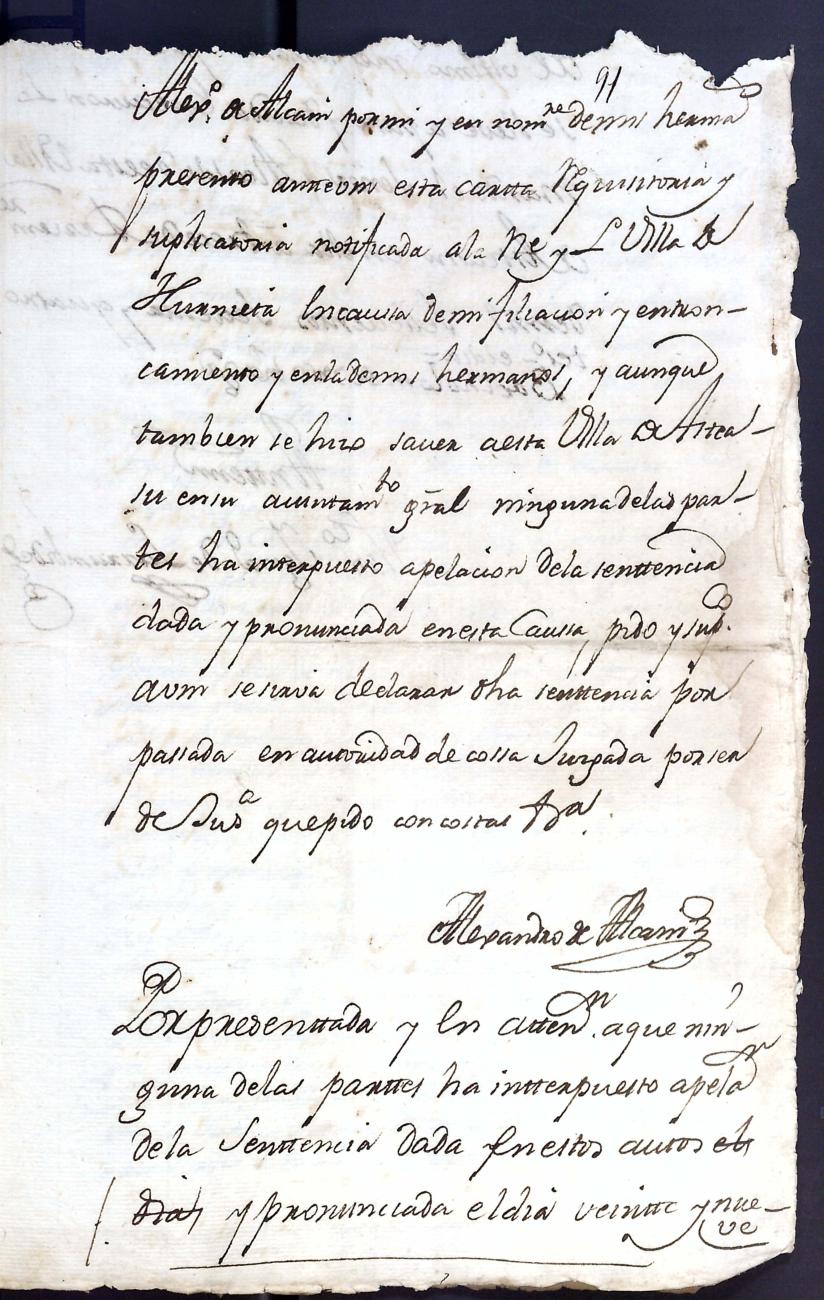 91
Alexo. de Alcain por mi y en nomre de mis herma
presento antte vm esta cartta Requisitoria y
suplicatoria notificada a la Ne y L Villa de
Hurnieta En caussa de mi filiacion y entron-
camiento y en la de mis hermanos, y aunque
tambien se hizo saver a esta Villa de Astea-
su en su aiuntamto gral ninguna de las par-
tes ha interpuesto apelacion de la senttencia
dada y pronunciada en esta Caussa, pido y supco.
a vm se sirva declarar dha senttencia por
passada en autoridad de cossa Juzgada por ser
de Justa que pido con costas
Alexandro de Alcain
Por presenttada y En atten.on a que nin-
guna de las parttes ha intterpuesto apelaon
de la Senttencia dada En estos autos el
dia y pronunciada el dia veintte y nue-
ve